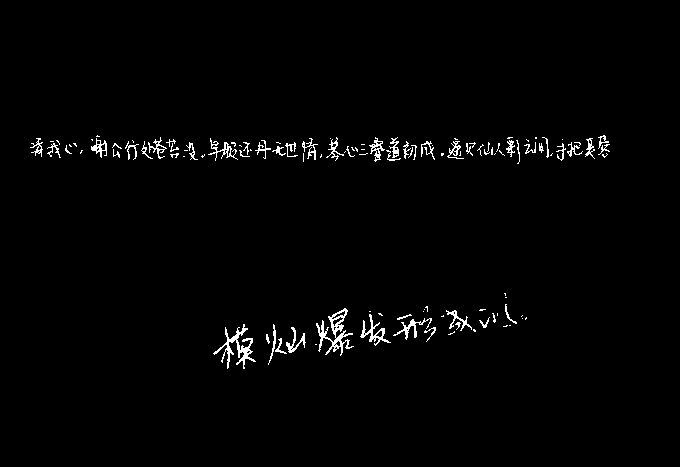 清我心,谢公行处苍苔没。早服还丹无世情,琴心三叠道初成。遥见仙人彩云间,手把芙蓉
模火山爆发形成